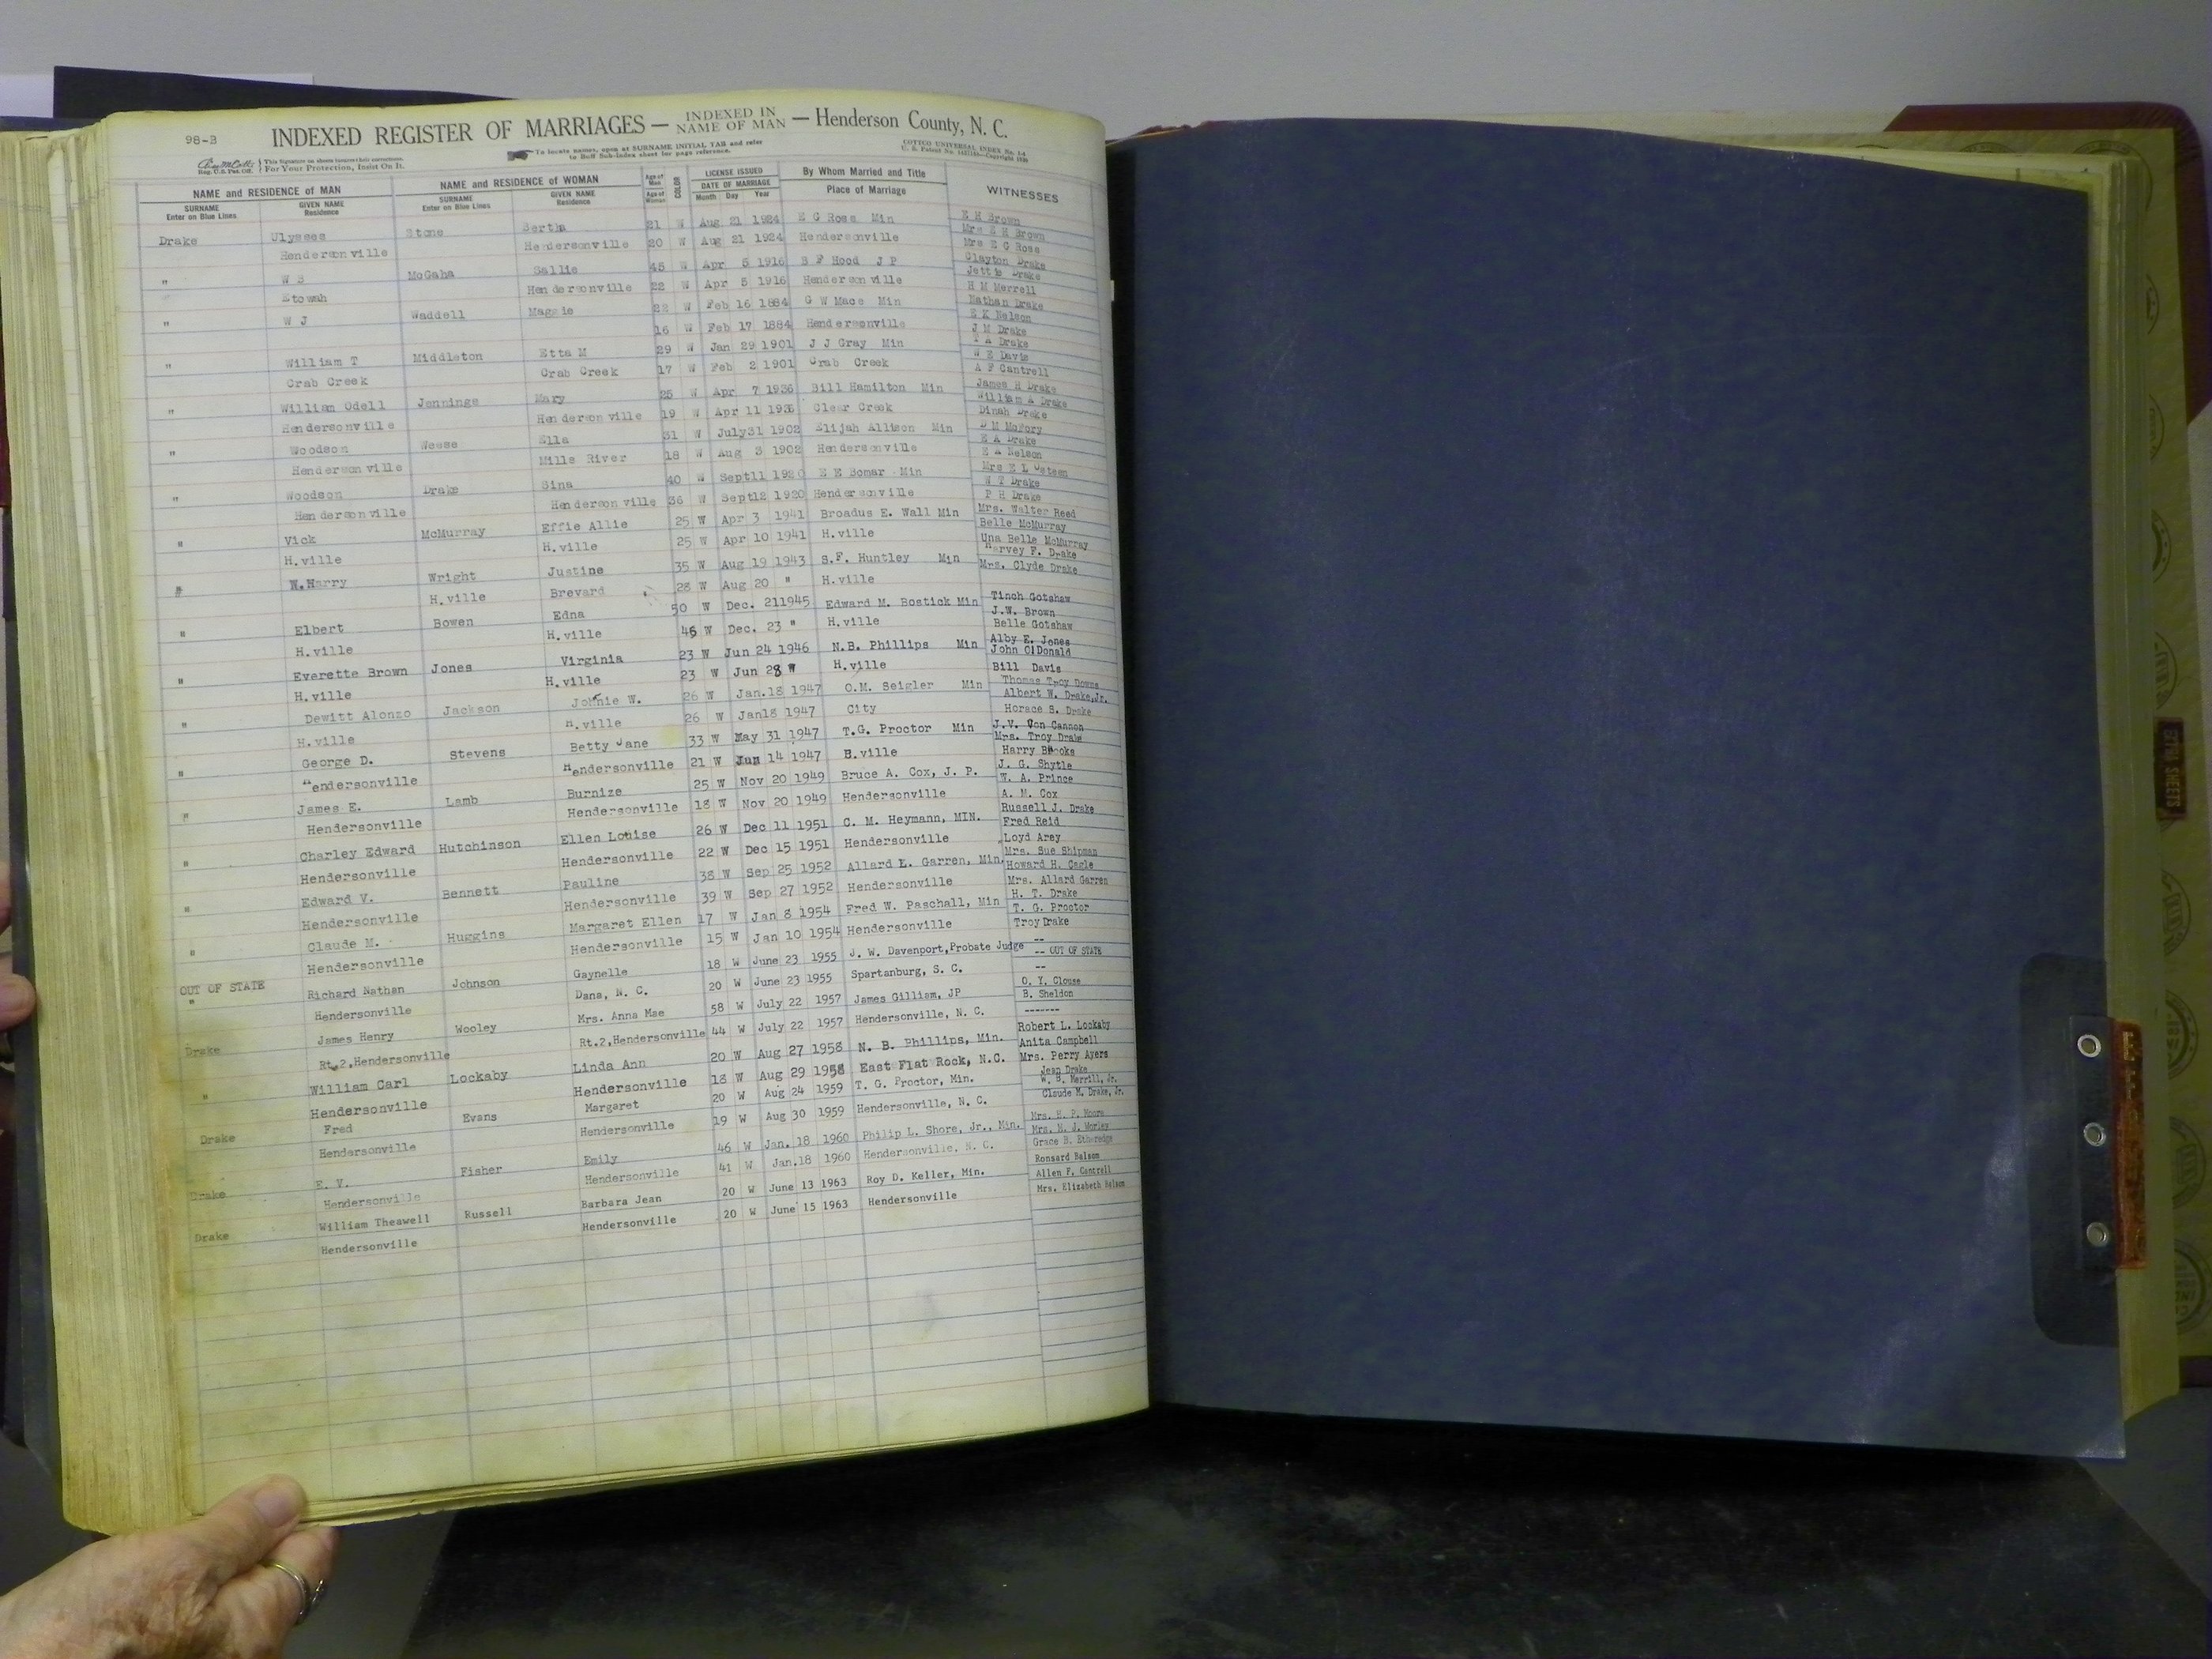 98-B
INDEXED REGISTER OF MARRIAGES — INDEXED IN NAME OF MAN — Henderson County, N. C.
This Signature on sheets insures their correctness.
For Your Protection, Insist On It.
Reg. U.S. Pat. Off.
To locate names, open at SURNAME INITIAL TAB and refer
to Buff Sub-Index sheet for page reference.
COTICO UNIVERSAL INDEX
NAME and RESIDENCE of MAN NAME and RESIDENCE of WOMAN Age of Man Age of Woman COLOR LICENSE ISSUED DATE OF MARRIAGE By Whom Married and Title Place of Marriage WITNESSES
SURNAME Enter on Blue Lines GIVEN NAME Residence SURNAME Enter on Blue Lines GIVEN NAME Residence Month Day Year
Drake Ulysses Stone Bertha 21 W Aug 21 1924 E G Rose Min E H Brown
Hendersonville Hendersonville 20 W Aug 21 1924 Hendersonville Mrs E H Brown
Mrs E G Rose
" W S McGaha Sallie 45 W Apr 5 1916 S F Hood J P Clayton Drake
Etowah Hendersonville 22 W Apr 5 1916 Hendersonville Jettie Drake
H M Merrell
" W J Waddell Maggie 22 W Feb 16 1884 G W Mace Min Nathan Drake
16 W Feb 17 1884 Hendersonville E K Nelson
J M Drake
" William T Middleton Etta M 29 W Jan 29 1901 J J Gray Min A Drake
Crab Creek Crab Creek 17 W Feb 2 1901 Crab Creek W E Davis
A F Cantrell
" William Odell Jennings Mary 25 W Apr 7 1936 Bill Hamilton Min James H Drake
Hendersonville Hendersonville 19 W Apr 11 1936 Clear Creek William A Drake
Dinah Drake
" Woodson Wesse Ella 31 W July 31 1902 Elijah Allison Min D M McFory
Hendersonville Mills River 18 W Aug 3 1902 Hendersonville E A Drake
E A Nelson
" Woodson Drake Sina 40 W Sept 11 1920 E E Bomar Min Mrs E L Osteen
Hendersonville Hendersonville 36 W Sept 12 1920 Hendersonville W T Drake
P H Drake
" Vick McMurray Effie Allie 25 W Apr 3 1941 Broadus E. Wall Min Mrs. Walter Reed
H.ville H.ville 25 W Apr 10 1941 H.ville Belle McMurray
Una Belle McMurray
" W.Harry Wright Justine 35 W Aug 19 1943 S.F. Huntley Min Harvey F. Drake
H.ville Brevard 28 W Aug 20 " H.ville Mrs. Clyde Drake
" Elbert Bowen Edna 50 W Dec. 21 1945 Edward M. Bostick Min Tinch Gotshaw
H.ville H.ville 46 W Dec. 23 " H.ville J.W. Brown
Belle Gotshaw
" Everette Brown Jones Virginia 23 W Jun 24 1946 N.B. Phillips Min Alby E. Jones
H.ville H.ville 23 W Jun 28 " H.ville John O'Donald
Bill Davis
" Dewitt Alonzo Jackson Johnie W. 26 W Jan.18 1947 O.M. Seigler Min Thomas Troy Downs
H.ville H.ville 26 W Jan18 1947 City Albert W. Drake,Jr.
Horace S. Drake
" George D. Stevens Betty Jane 33 W May 31 1947 T.G. Proctor Min J.V. Von Cannon
Hendersonville Hendersonville 21 W Jun 14 1947 H.ville Mrs. Troy Drake
Harry Brooks
" James E. Lamb Burnize 25 W Nov 20 1949 Bruce A. Cox, J. P. J. G. Shytle
Hendersonville Hendersonville 18 W Nov 20 1949 Hendersonville W. A. Prince
A. M. Cox
" Charley Edward Hutchinson Ellen Louise 26 W Dec 11 1951 C. M. Heymann, MIN. Russell J. Drake
Hendersonville Hendersonville 22 W Dec 15 1951 Hendersonville Fred Reid
Loyd Arey
" Edward V. Bennett Pauline 38 W Sep 25 1952 Allard E. Garren, Min. Mrs. Sue Shipman
Hendersonville Hendersonville 39 W Sep 27 1952 Hendersonville Howard H. Cagle
Mrs. Allard Garren
" Claude M. Huggins Margaret Ellen 17 W Jan 8 1954 Fred W. Paschall, Min H. T. Drake
Hendersonville Hendersonville 15 W Jan 10 1954 Hendersonville T. G. Proctor
Troy Drake
OUT OF STATE
" Richard Nathan Johnson Gaynelle 18 W June 23 1955 J. W. Davenport,Probate Judge --
Hendersonville Dana, N. C. 20 W June 23 1955 Spartanburg, S. C. -- OUT OF STATE
--
Drake James Henry Wooley Mrs. Anna Mae 58 W July 22 1957 James Gilliam, JP O. Y. Clouse
Rt.2,Hendersonville Rt.2,Hendersonville 44 W July 22 1957 Hendersonville, N. C. B. Sheldon
-------
" William Carl Lockaby Linda Ann 20 W Aug 27 1958 N. B. Phillips, Min. Robert L. Lockaby
Hendersonville Hendersonville 18 W Aug 29 1958 East Flat Rock, N.C. Anita Campbell
Mrs. Perry Ayers
Drake Fred Evans Margaret 20 W Aug 24 1959 T. G. Proctor, Min. Jean Drake
Hendersonville Hendersonville 19 W Aug 30 1959 Hendersonville, N. C. W. B. Merrill, Jr.
Claude M. Drake, Jr.
Drake E. V. Fisher Emily 46 W Jan. 18 1960 Philip L. Shore, Jr., Min. Mrs. H. P. Moore
Hendersonville Hendersonville 41 W Jan.18 1960 Hendersonville, N. C. Mrs. H. J. Worley
Grace B. Etheredge
Drake William Theawell Russell Barbara Jean 20 W June 13 1963 Roy D. Keller, Min. Ronsard Balsom
Hendersonville Hendersonville 20 W June 15 1963 Hendersonville Allen F. Cantrell
Mrs. Elizabeth Balsom
EXTRA SHEETS